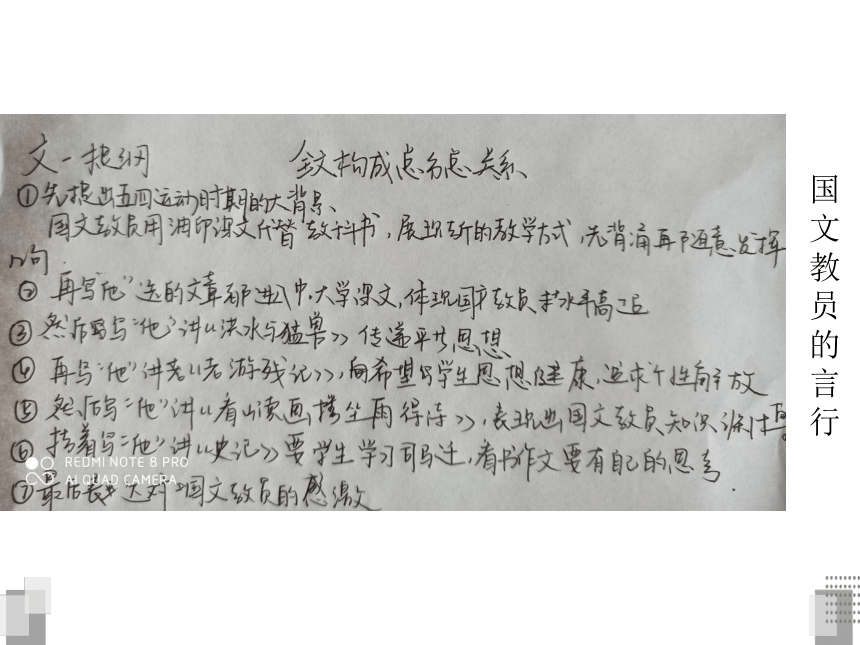 文一提纲 全文构成总分总关系
①先提出五四运动时期的大背景、
国文教员用油印课文代替教科书，展现新的教学方式，先背诵再随意发挥
几句.
② 再写"他"选的文章都进入中、大学课文，体现国文教员水平高
③ 然后写"他"讲《洪水与猛兽》传递平共思想
④ 再写"他"讲《老游残记》，希望学生思想健康，追求个性解放
⑤ 然后写"他"讲《看山读画楼坐雨得诗》，表现出国文教员知识渊博
⑥ 接着写"他"讲《史记》要学生学习司马迁，看书作文要有自己的思考
⑦ 最后表达对国文教员的感激
REDMI NOTE 8 PRO
AI QUAD CAMERA
国文教员的言行